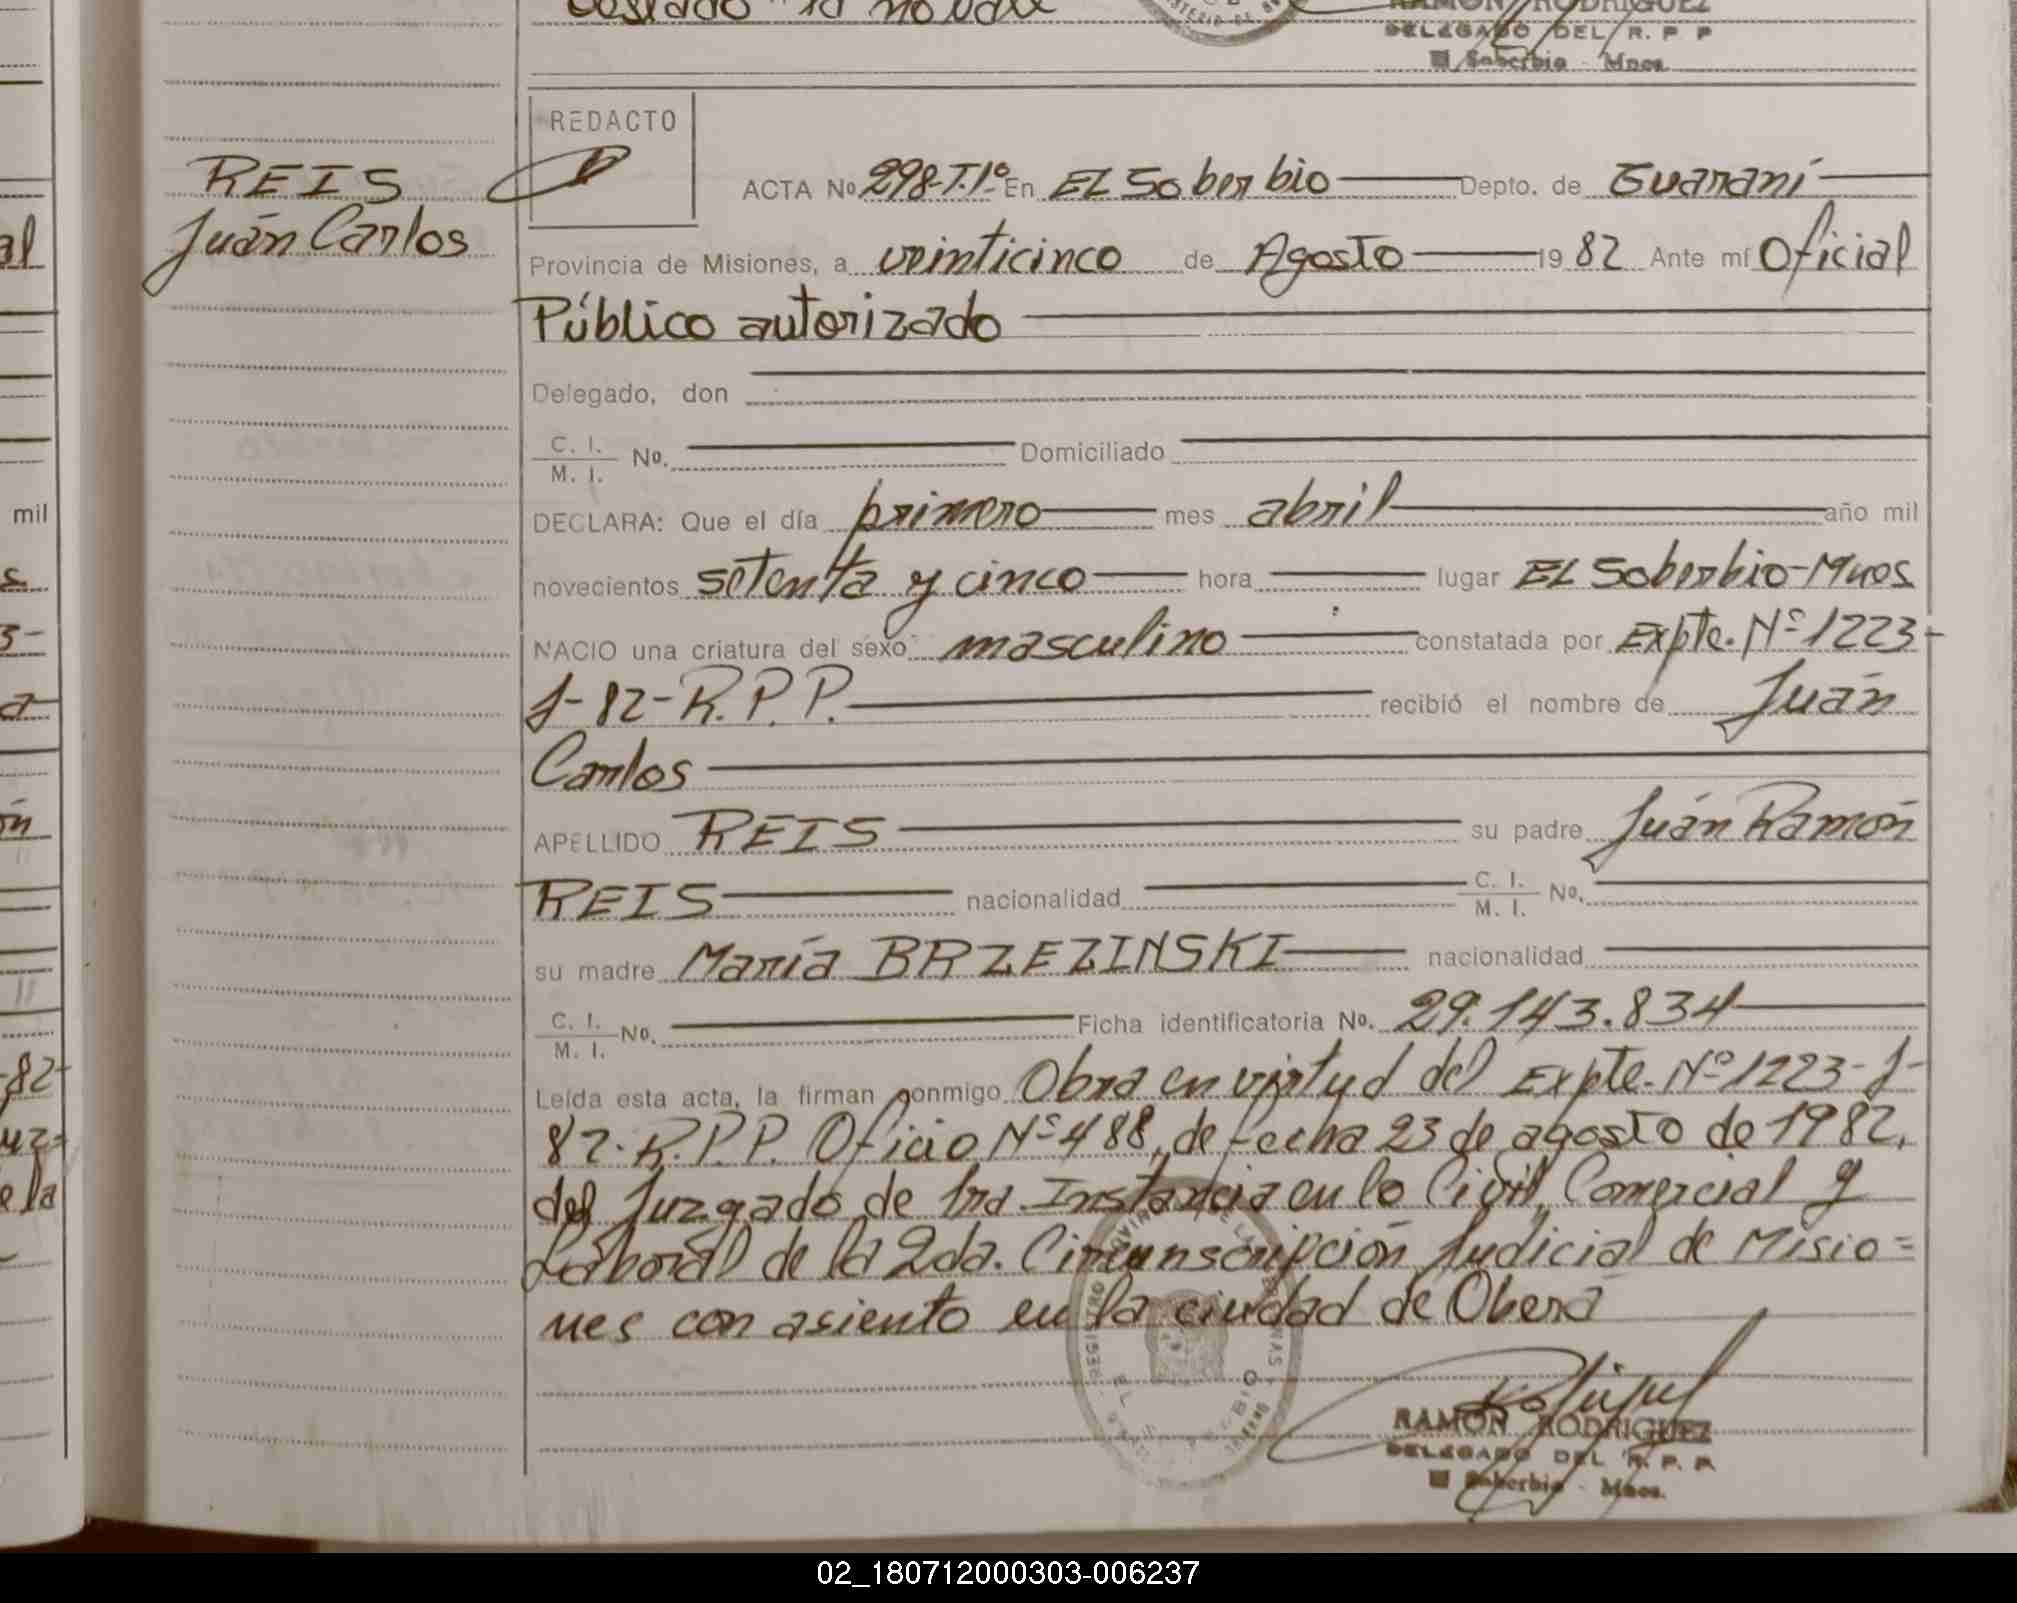 RAMON RODRIGUEZ
DELEGADO DEL R. P. P
El Soberbio - Mnes
REDACTO
REIS
Juán Carlos
ACTA No 298-T.1º En EL Soberbio Depto. de Guaraní
Provincia de Misiones, a veinticinco de Agosto 1982 Ante mí Oficial
Público autorizado
Delegado, don
C. I.
M. I. No. Domiciliado
DECLARA: Que el día primero mes abril año mil
novecientos setenta y cinco hora lugar EL Soberbio-Mnes
NACIO una criatura del sexo masculino constatada por Expte. Nº 1223-
J-82-R.P.P. recibió el nombre de Juán
Carlos
APELLIDO REIS su padre Juán Ramón
REIS nacionalidad C. I.
M. I. No.
su madre María BRZEZINSKI nacionalidad
C. I.
M. I. No. Ficha identificatoria No. 29.143.834
Leída esta acta, la firman conmigo Obra en virtud del Expte. Nº 1223-J-
82-R.P.P. Oficio Nº 488, de fecha 23 de agosto de 1982,
del Juzgado de 1ra. Instancia en lo Civil, Comercial y
Laboral de la 2da. Circunscripción Judicial de Misio=
nes con asiento en la ciudad de Oberá
RAMON RODRIGUEZ
DELEGADO DEL R. P. P.
El Soberbio - Mnes.
mil
02_180712000303-006237